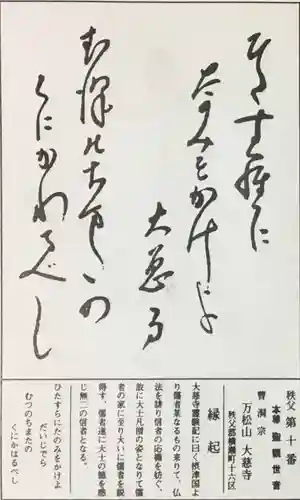 ひたすらに
たのみをかけよ
大慈寺
むつのちまたの
くにかわるべし
秩父 第十番
本尊 聖観世音
曹洞宗
万松山 大慈寺
秩父郡横瀬町十六区
縁起
大慈寺霊験記に曰く摂津国よ
り儒者某なるもの来りて、仏
法を謗り信者の応機を紡ぐ、
故に大士凡僧の姿となりて儒
者の家に至り大いに儒者を説
得す、儒者遂に大士の徳を感
じ無二の信者となる。
ひたすらにたのみをかけよ
だいじでら
むつのちまたの
くにかはるべし